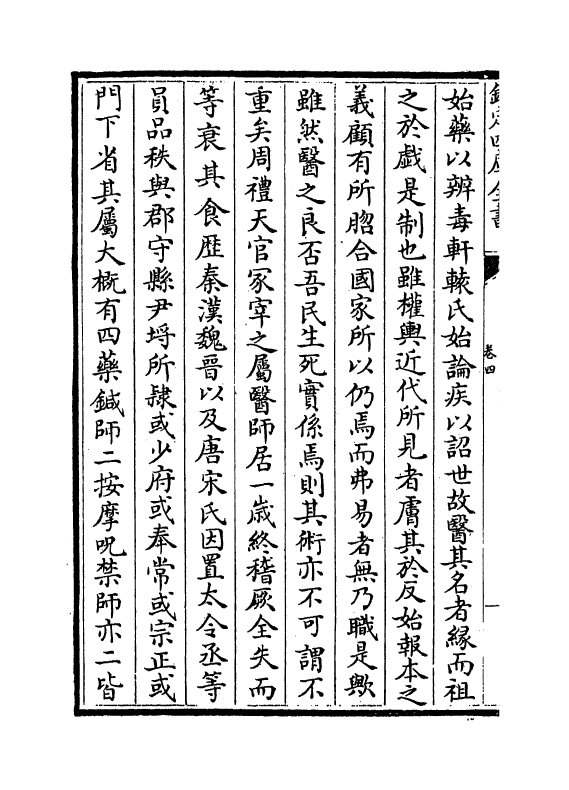 欽定四庫全書
卷四
始藥以辨毒軒轅氏始論疾以詔世故醫其名者緣而祖
之於戯是制也雖權輿近代所見者膚其於反始報本之
義顧有所脗合國家所以仍焉而弗易者無乃職是歟
雖然醫之良否吾民生死實係焉則其術亦不可謂不
重矣周禮天官冢宰之屬醫師居一歲終稽厥全失而
等衰其食歴秦漢魏晉以及唐宋氏因置太令丞等
員品秩與郡守縣尹埒所隸或少府或奉常或宗正或
門下省其屬大概有四藥鍼師二按摩呪禁師亦二皆